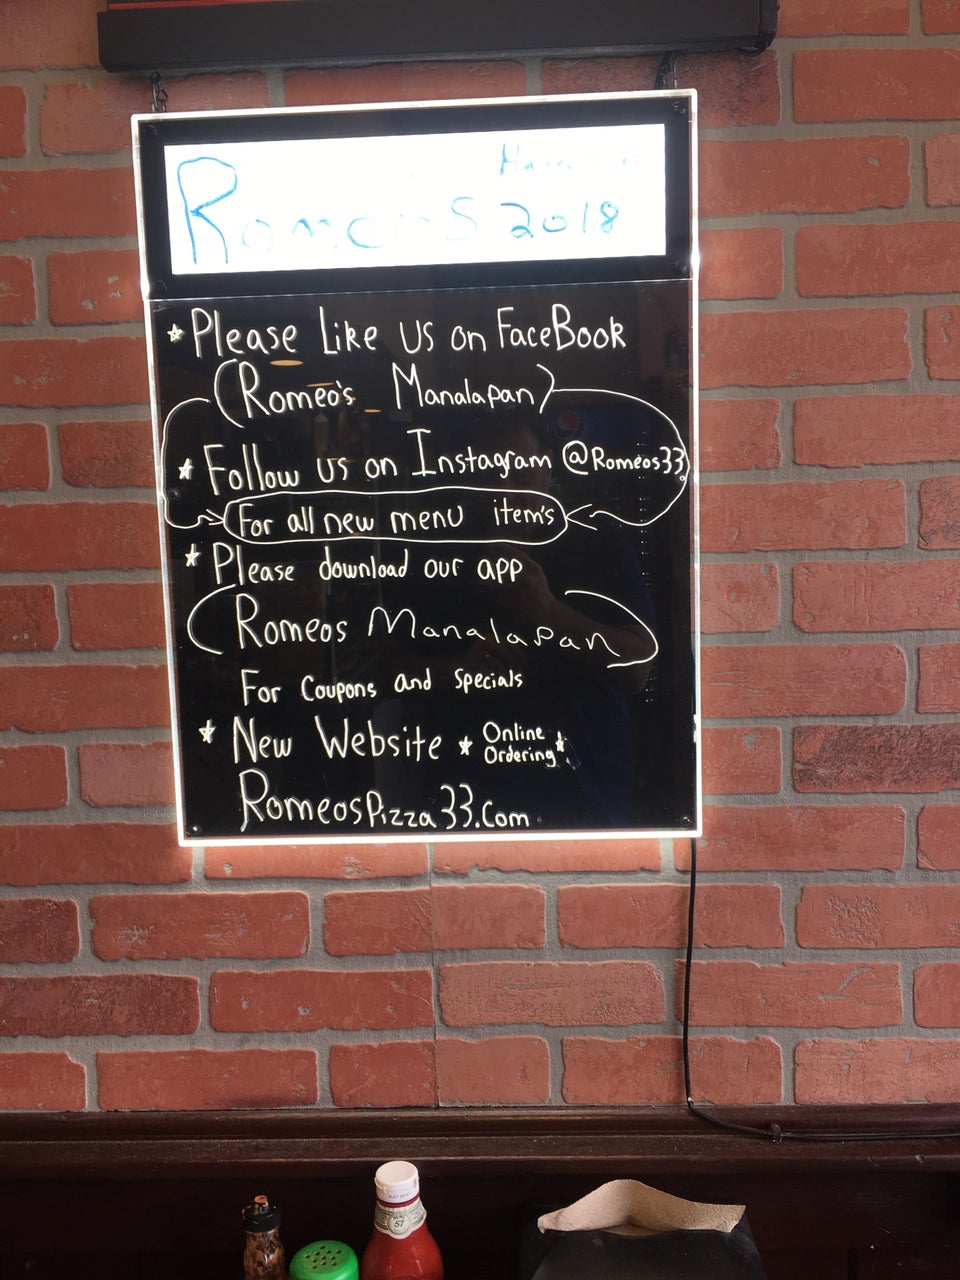 Romeos 2018
* Please Like us on FaceBook
(Romeo's Manalapan)
* Follow us on Instagram @Romeos33
For all new menu item's
* Please download our app
(Romeos Manalapan)
For Coupons and Specials
* New Website * Online Ordering *
RomeosPizza33.com
57